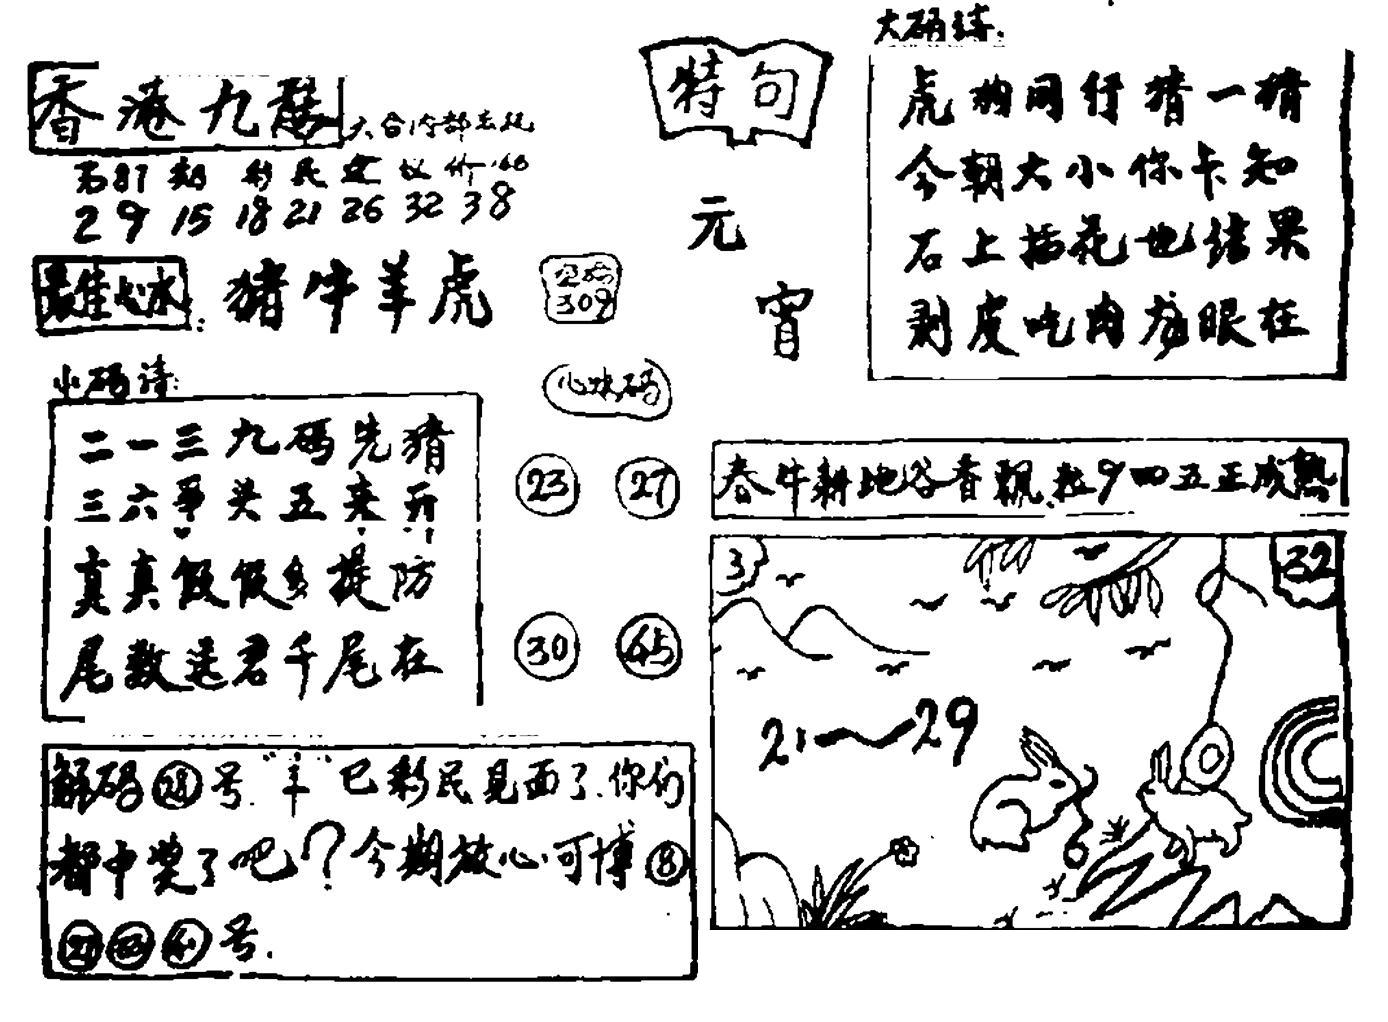 香港九龙
六合内部
第87期 彩民建议价
2 9 15 18 21 26 32 38
最佳心水: 猪牛羊虎
309
小码诗:
二一三九码先猜
三六争头五来开
真真假假多提防
尾数送君千尾在
心水码
23 27
30 45
解码 28 号."羊"已彩民见面了.你们
都中奖了吧?今期放心可博 8
号.
特句
元
宵
大码诗:
虎狗同行猜一猜
今朝大小你卡知
石上插花也结果
剥皮吃肉龙眼在
春牛耕地谷香飘.粒9四五正成熟
3 32
21~29